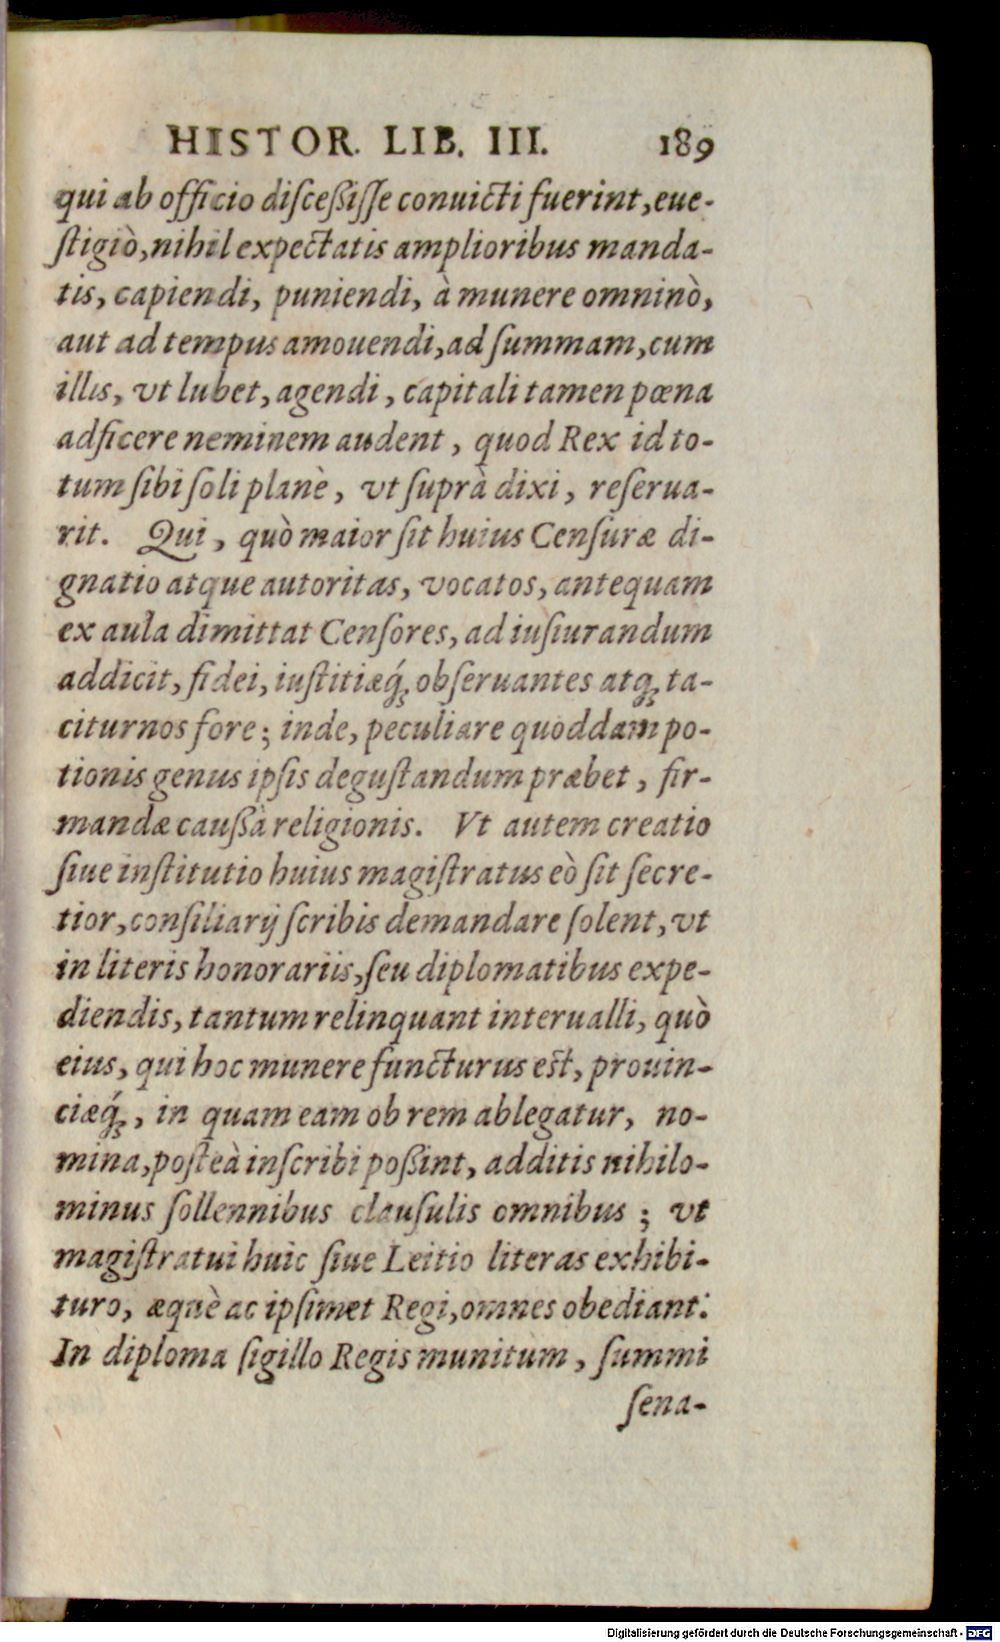 HISTOR. LIB. III. 189
qui ab officio diſceßiſſe conuicti fuerint, eue-
ſtigiò, nihil expectatis amplioribus manda-
tis, capiendi, puniendi, à munere omninò,
aut ad tempus amouendi, ad ſummam, cum
illis, vt lubet, agendi, capitali tamen pœna
adficere neminem audent, quod Rex id to-
tum ſibi ſoli planè, vt ſuprà dixi, reſerua-
rit. Qui, quò maior ſit huius Cenſuræ di-
gnatio atque autoritas, vocatos, antequam
ex aula dimittat Cenſores, ad iuſiurandum
addicit, fidei, iuſtitiæq́; obſeruantes atq; ta-
citurnos fore; inde, peculiare quoddam po-
tionis genus ipſis deguſtandum præbet, fir-
mandæ caußà religionis. Vt autem creatio
ſiue inſtitutio huius magiſtratus eò ſit ſecre-
tior, conſiliarij ſcribis demandare ſolent, vt
in literis honorariis, ſeu diplomatibus expe-
diendis, tantum relinquant interualli, quò
eius, qui hoc munere functurus est, prouin-
ciæq́;, in quam eam ob rem ablegatur, no-
mina, poſteà inſcribi poßint, additis nihilo-
minus ſollennibus clauſulis omnibus; vt
magiſtratui huic ſiue Leitio literas exhibi-
turo, æquè ac ipſimet Regi, omnes obediant.
In diploma ſigillo Regis munitum, ſummi
ſena-
Digitalisierung gefördert durch die Deutsche Forschungsgemeinschaft - DFG